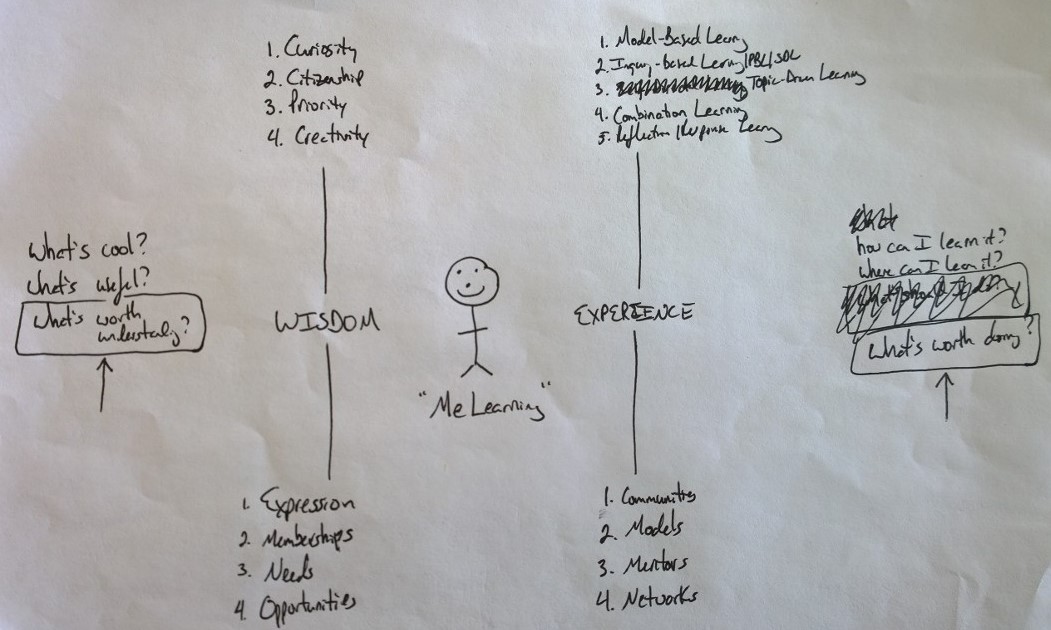 1. Curiosity
2. Citizenship
3. Priority
4. Creativity
1. Model-Based Learng
2. Inquiry-based Learng/PBL/SDL
3. Topic-Driven Learning
4. Combination Learning
5. Reflection/Response Learng
What's cool?
What's useful?
What's worth
understanding?
WISDOM
"Me Learning"
EXPERIENCE
how can I learn it?
where can I learn it?
What's worth doing?
1. Expression
2. Memberships
3. Needs
4. Opportunities
1. Communities
2. Models
3. Mentors
4. Networks